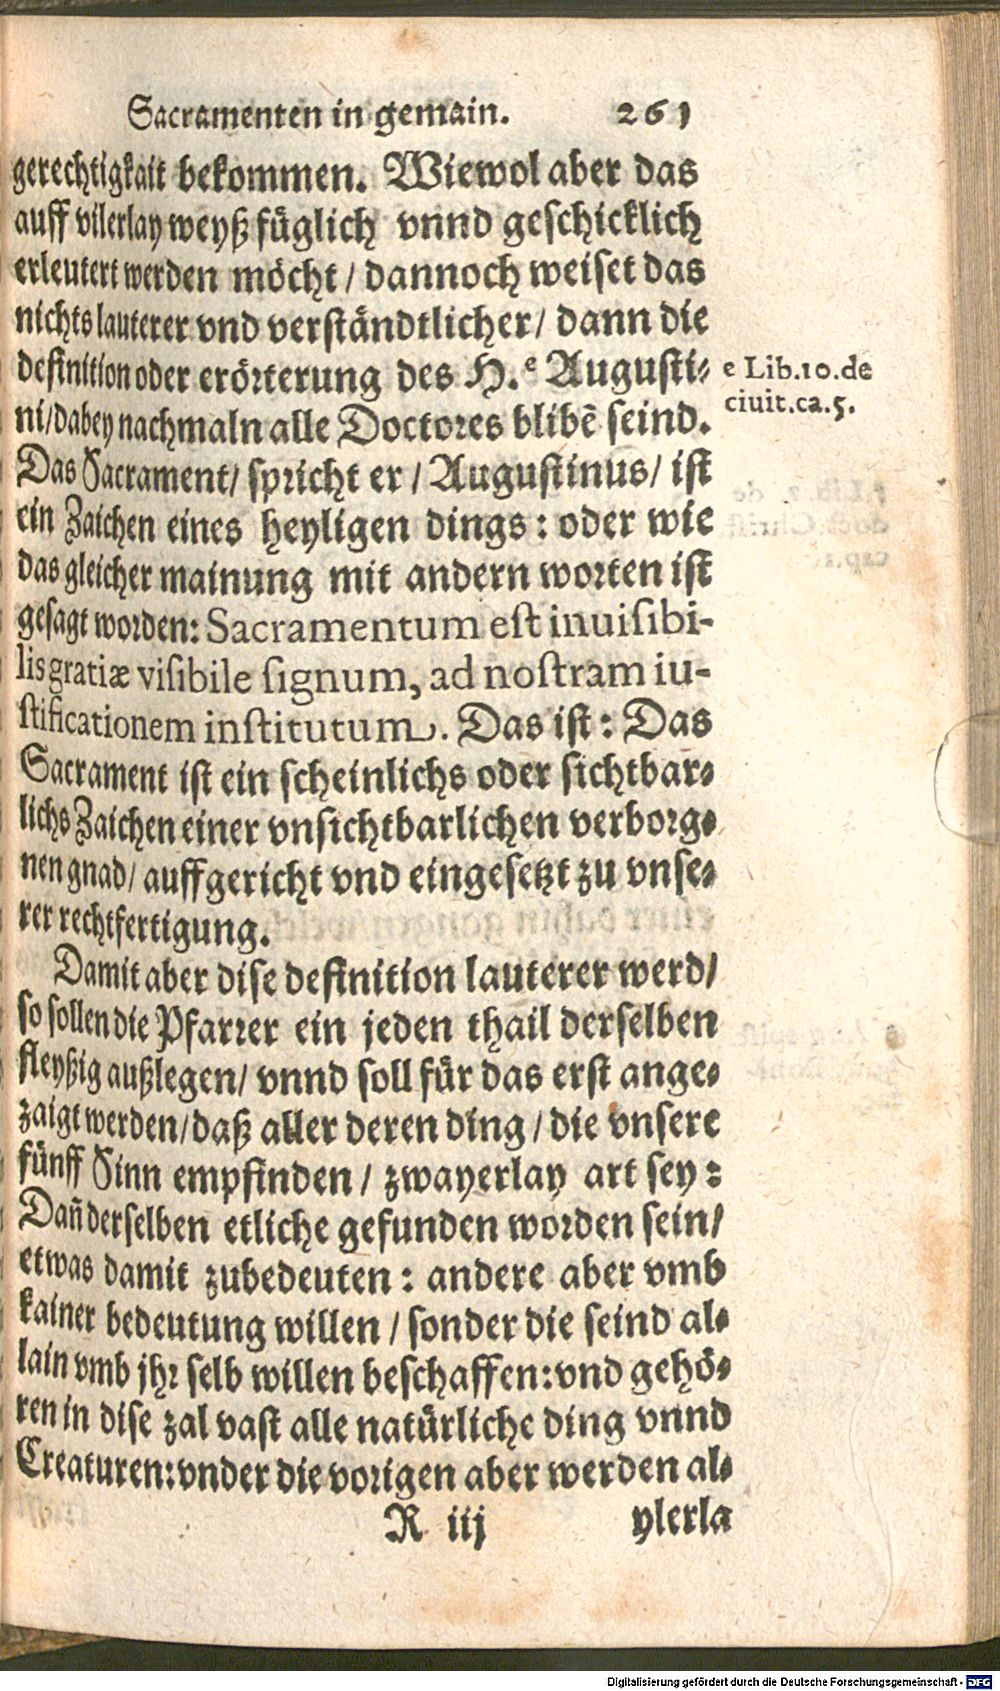 Sacramenten in gemain. 261
gerechtigkait bekommen. Wiewol aber das
auff vilerlay weyß füglich vnnd geschicklich
erleutert werden möcht / dannoch weiset das
nichts lauterer vnd verständtlicher / dann die
definition oder erörterung des H. e Augusti-
e Lib.10.de
ciuit.ca.5.
ni/dabey nachmaln alle Doctores blibē seind.
Das Sacrament/ spricht er / Augustinus/ ist
ein Zaichen eines heyligen dings: oder wie
das gleicher mainung mit andern worten ist
gesagt worden: Sacramentum est inuisibi-
lis gratiæ visibile signum, ad nostram iu-
stificationem institutum. Das ist: Das
Sacrament ist ein scheinlichs oder sichtbar-
lichs Zaichen einer vnsichtbarlichen verborg-
nen gnad/ auffgericht vnd eingesetzt zu vnse-
rer rechtfertigung.
Damit aber dise definition lauterer werd/
so sollen die Pfarrer ein jeden thail derselben
fleyßig außlegen/ vnnd soll für das erst ange-
zaigt werden/daß aller deren ding / die vnsere
fünff Sinn empfinden / zwayerlay art sey:
Dañ derselben etliche gefunden worden sein/
etwas damit zubedeuten: andere aber vmb
kainer bedeutung willen / sonder die seind al-
lain vmb jhr selb willen beschaffen: vnd gehö-
ren in dise zal vast alle natürliche ding vnnd
Creaturen: vnder die vorigen aber werden al-
R iij ylerla
Digitalisierung gefördert durch die Deutsche Forschungsgemeinschaft - DFG